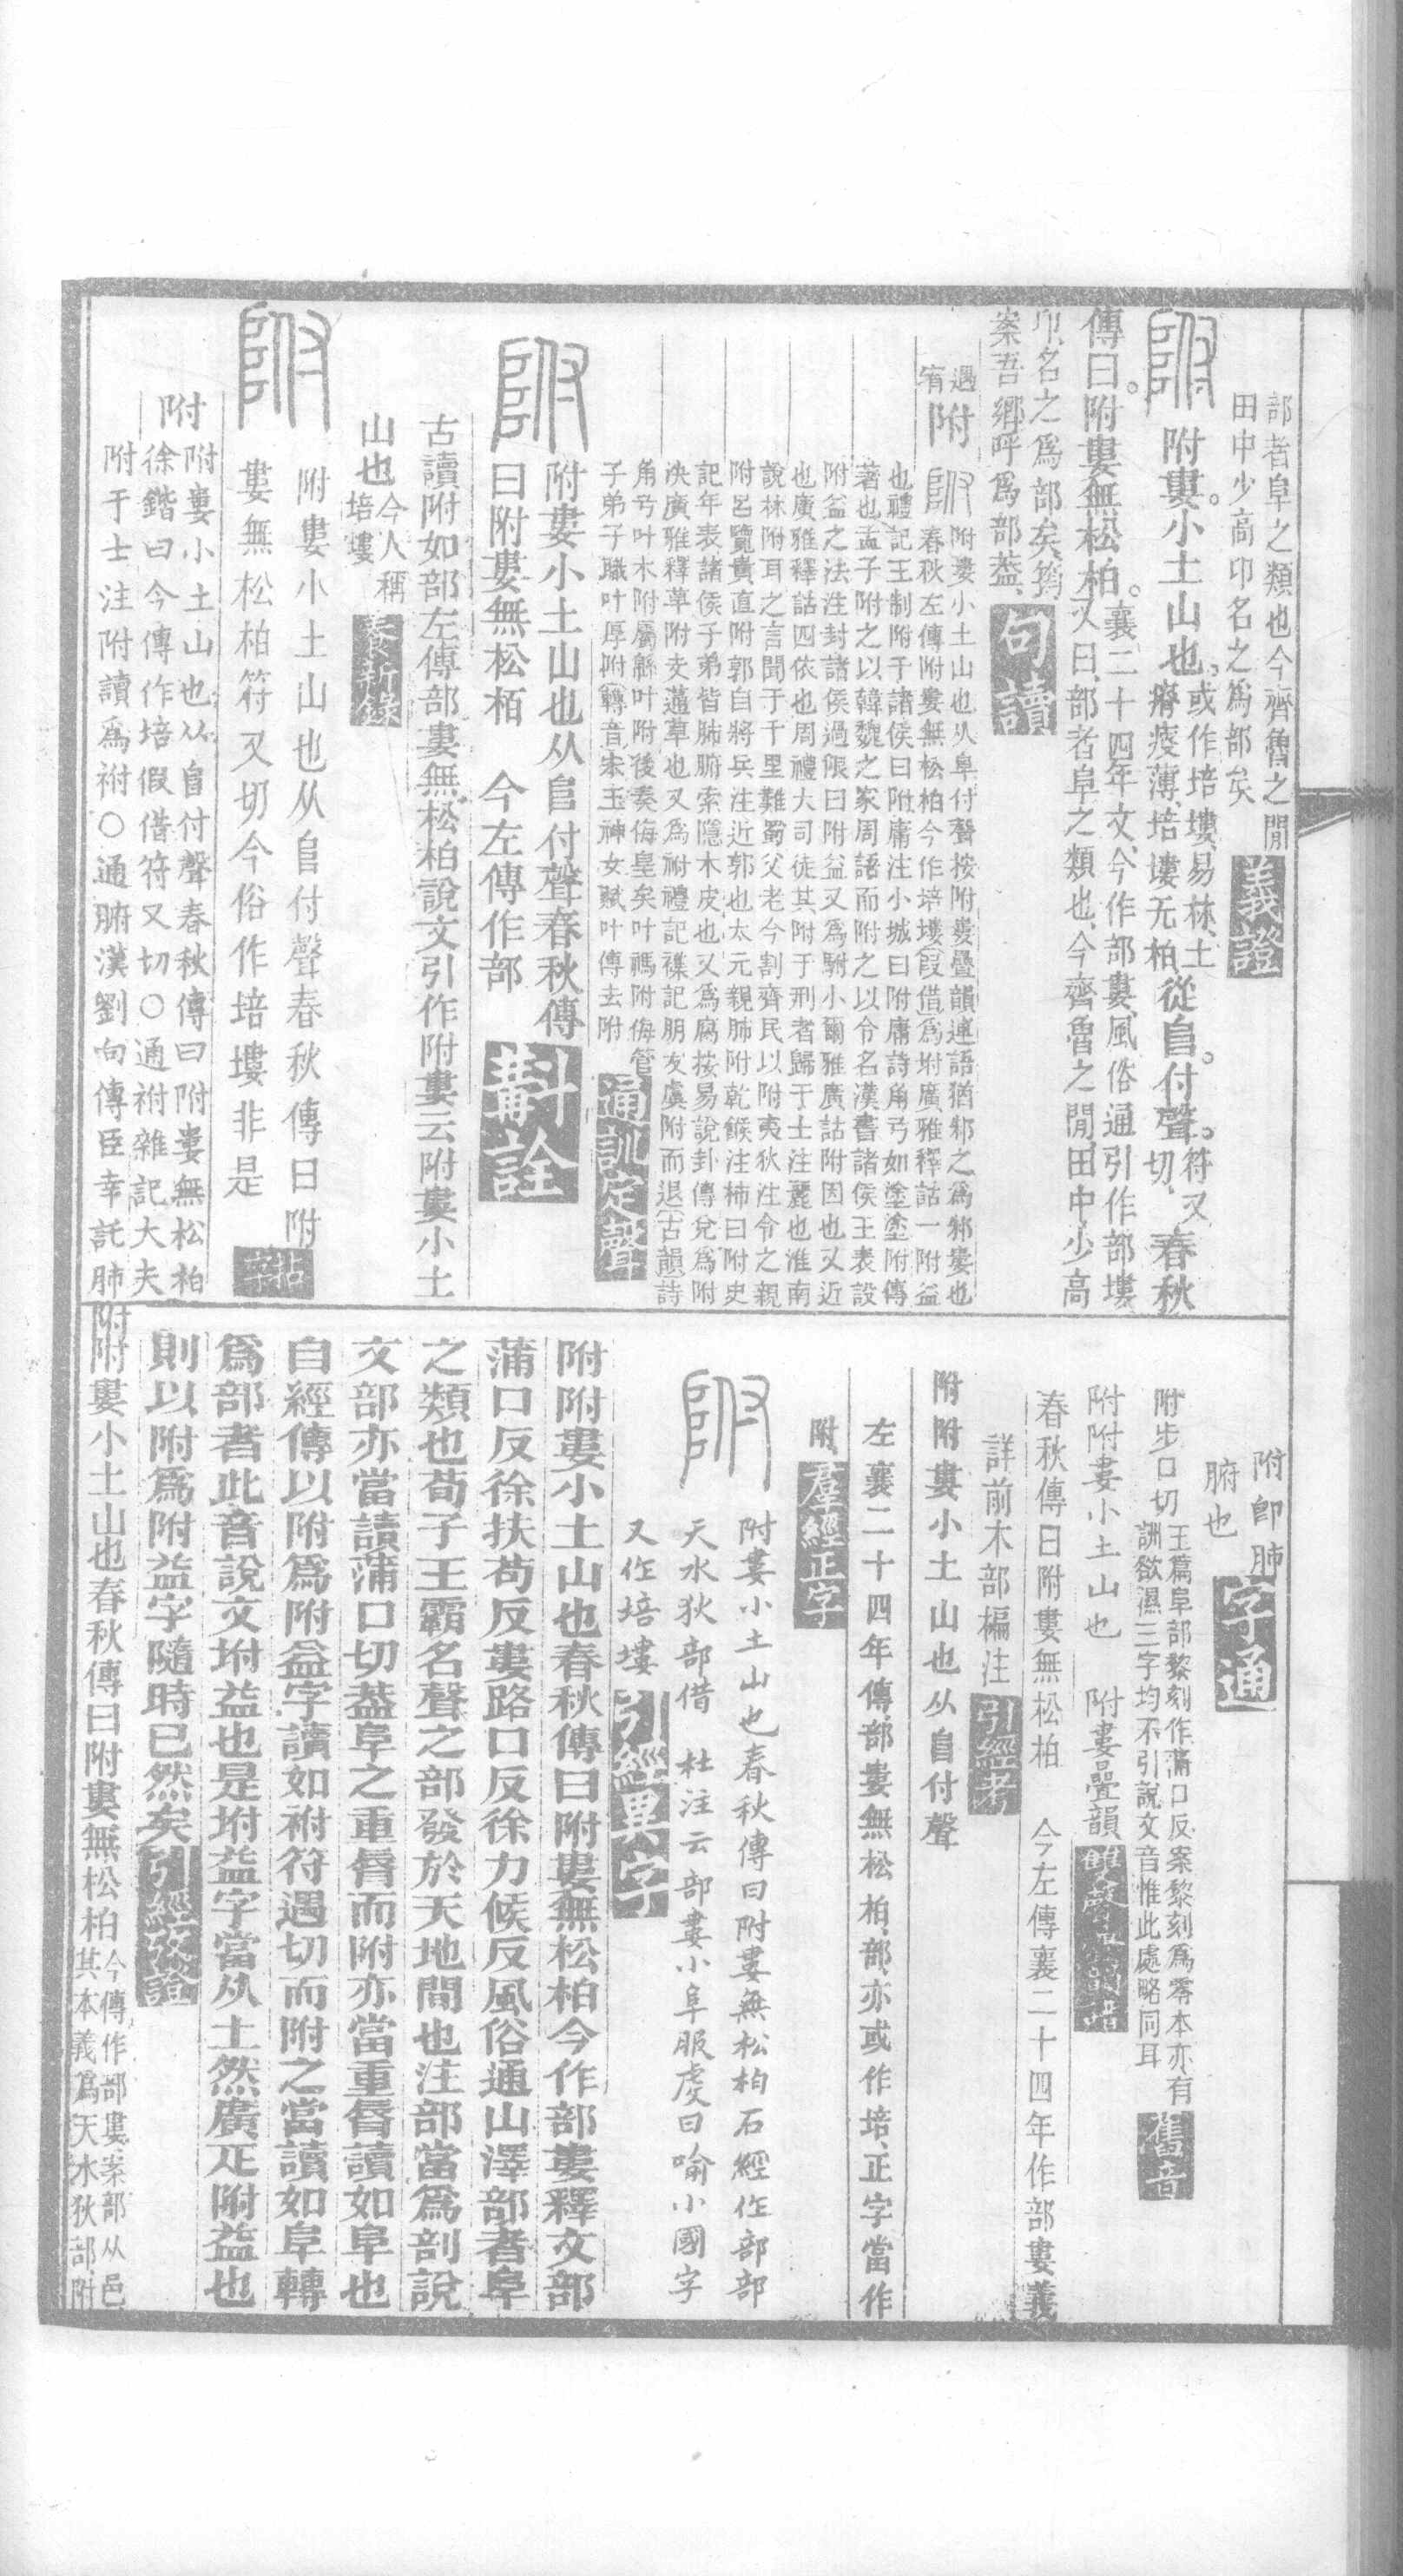 部者阜之類也今齊魯之閒
田中少高卬名之爲部矣
義證
附婁小土山也
或作培塿易林土
瘠瘦薄培塿无柏
從𨸏付聲
符又
切
春秋
傳曰附婁無松柏
襄二十四年文今作部婁風俗通引作部塿
又曰部者阜之類也今齊魯之閒田中少高
卬名之爲部矣筠
案吾鄉呼爲部葢
句讀
遇
宥
附
附婁小土山也从𨸏付聲按附婁疊韻連語猶邾之爲邾婁也
春秋左傳附婁無松柏今作培塿叚借爲坿廣雅釋詁一附益
也禮記王制附于諸侯曰附庸注小城曰附庸詩角弓如塗塗附傳
著也孟子附之以韓魏之家周語而附之以令名漢書諸侯王表設
附益之法注封諸侯過限曰附益又爲駙小爾雅廣詁附因也又近
也廣雅釋詁四依也周禮大司徒其附于刑者歸于士注麗也淮南
說林附耳之言聞于千里難蜀父老今割齊民以附夷狄注令之親
附呂覽貴直附郭自將兵注近郭也太元親肺附乾餱注柿曰附史
記年表諸侯子弟皆肺腑索隱木皮也又爲腐按易說卦傳兌爲附
決廣雅釋草附支蓪草也又爲祔禮記襍記朋友虞附而退古韻詩
角弓叶木附屬緜叶附後奏侮皇矣叶禡附侮管
子弟子職叶厚附轉音宋玉神女賦叶傳去附
通訓定聲
附婁小土山也从𨸏付聲春秋傳
曰附婁無松栢　今左傳作部
斠詮
古讀附如部左傳部婁無松柏說文引作附婁云附婁小土
山也
今人稱
培塿
養新錄
附婁小土山也从𨸏付聲春秋傳曰附
婁無松柏符又切今俗作培塿非是
附
附婁小土山也从𨸏付聲春秋傳曰附婁無松柏
徐鍇曰今傳作培假借符又切○通祔雜記大夫
附于士注附讀爲祔○通腑漢劉向傳臣幸託肺附
附卽肺
腑也
字通
附步口切
玉篇阜部黎刻作蒲口反案黎刻爲零本亦有
訓欲濕三字均不引說文音惟此處略同耳
舊音
附附婁小土山也　附婁疊韻
春秋傳曰附婁無松柏　今左傳襄二十四年作部婁義
詳前木部楄注
引經考
附附婁小土山也从𨸏付聲
左襄二十四年傳部婁無松柏部亦或作培正字當作
附
羣經正字
附婁小土山也春秋傳曰附婁無松柏石經作部部
天水狄部借　杜注云部婁小阜服虔曰喻小國字
又作培塿
引經異字
附附婁小土山也春秋傳曰附婁無松柏今作部婁釋文部
蒲口反徐扶苟反婁路口反徐力候反風俗通山澤部者阜
之類也荀子王霸名聲之部發於天地間也注部當爲剖說
文部亦當讀蒲口切葢阜之重脣而附亦當重脣讀如阜也
自經傳以附爲附益字讀如祔符遇切而附之當讀如阜轉
爲部者此音說文坿益也是坿益字當从土然廣疋附益也
則以附爲附益字隨時已然矣
引經攷證
附婁小土山也春秋傳曰附婁無松柏
今傳作部婁案部从邑
其本義爲天水狄部附